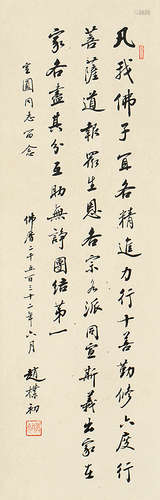 凡我佛子宜各精進力行十善勤修六度行
菩薩道報眾生恩各宗各派同宣斯義出家在
家各盡其分互助無諍團結第一
寶圓同志留念
佛曆二千五百三十二年六月
趙樸初